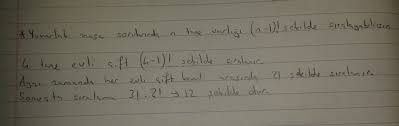 * Yuvarlak masa sorularında n tane varlığı (n-1)! şekilde sıralayabiliriz.
4 tane evli çift (4-1)! şekilde sıralanır.
Aynı zamanda her evli çift kendi arasında 2! şekilde sıralanır.
Sonuçta sıralama 3! . 2! → 12 şekilde olur.